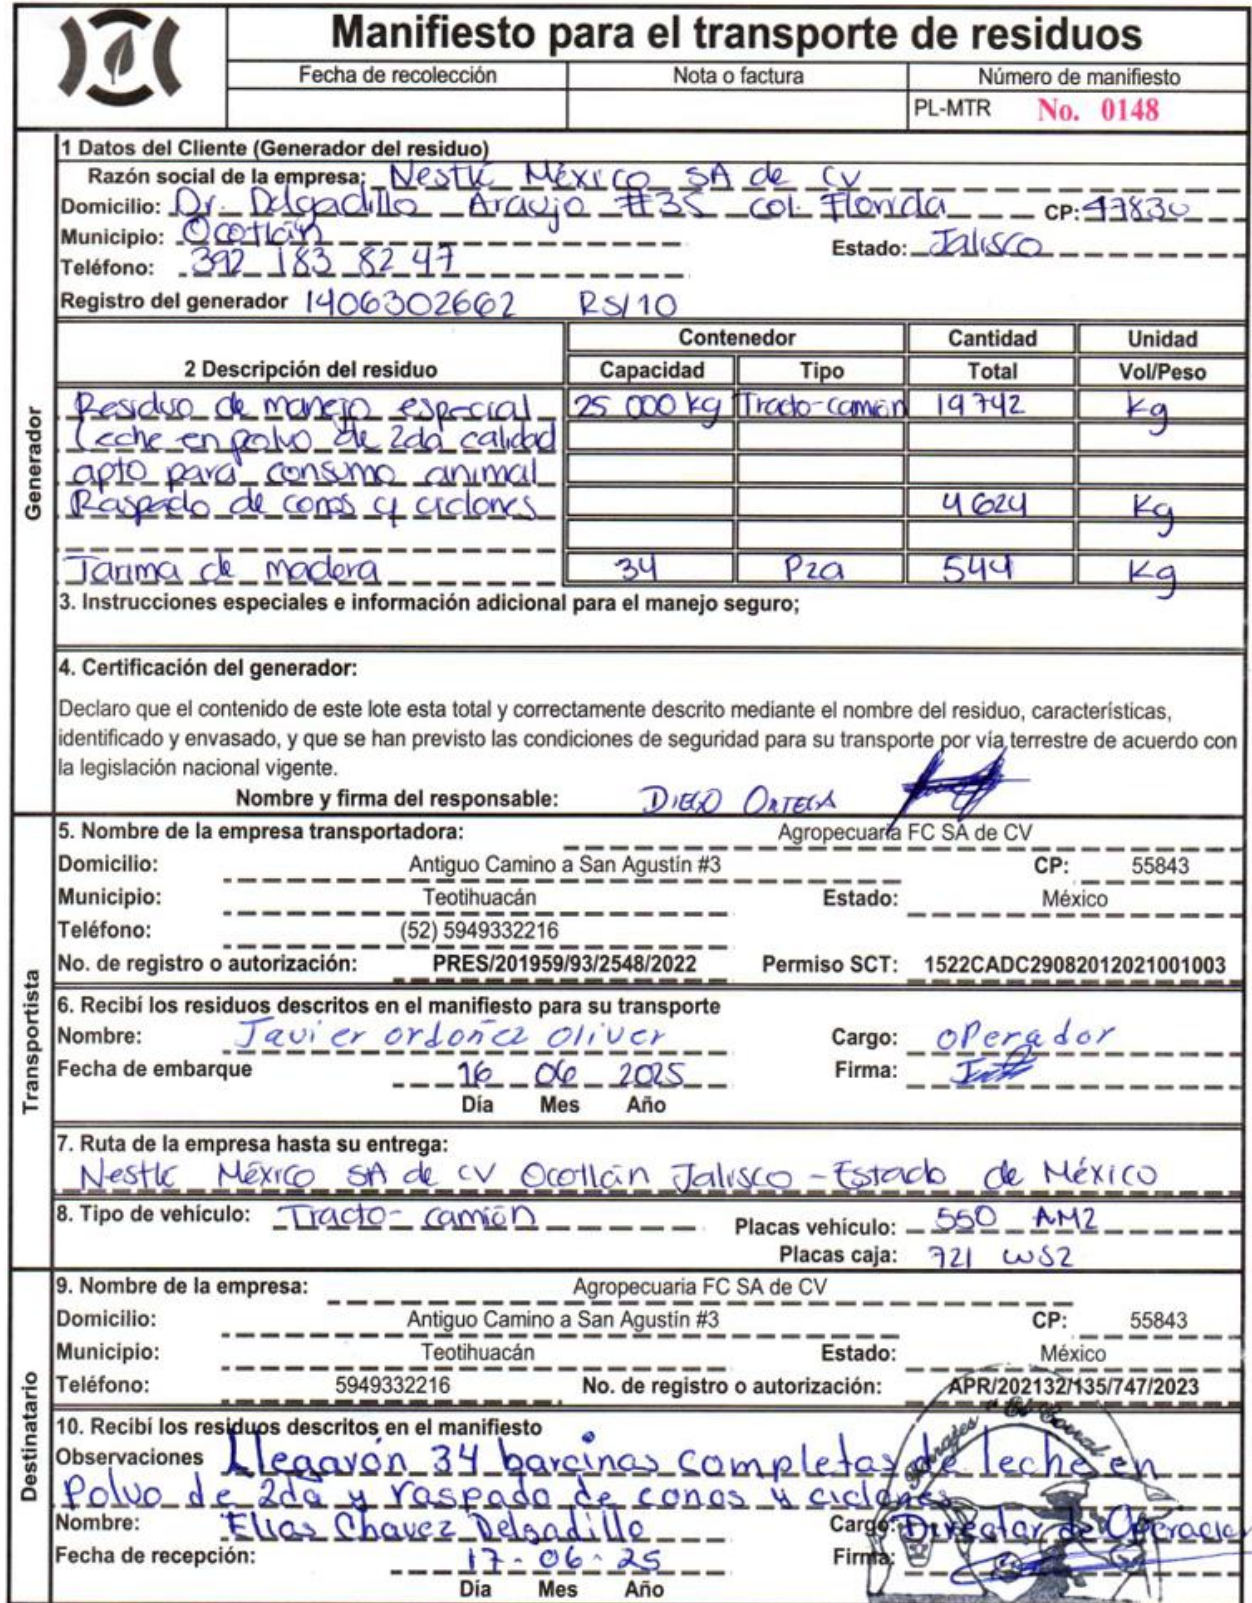 Manifiesto para el transporte de residuos
Fecha de recolección Nota o factura Número de manifiesto
PL-MTR No. 0148
Generador
1 Datos del Cliente (Generador del residuo)
Razón social de la empresa: Nestlé México SA de CV
Domicilio: Dr. Delgadillo Araujo #35 col. Florida CP: 47830
Municipio: Ocotlán Estado: Jalisco
Teléfono: 392 183 82 47
Registro del generador 1406302662 RS/10
2 Descripción del residuo Contenedor Cantidad Unidad
Capacidad Tipo Total Vol/Peso
Residuo de manejo especial 25 000 kg Tracto-camión 19 742 Kg
Leche en polvo de 2da calidad
apto para consumo animal
Raspado de conos y ciclones 4 624 Kg
Tarima de madera 34 Pza 544 Kg
3. Instrucciones especiales e información adicional para el manejo seguro;
4. Certificación del generador:
Declaro que el contenido de este lote esta total y correctamente descrito mediante el nombre del residuo, características,
identificado y envasado, y que se han previsto las condiciones de seguridad para su transporte por vía terrestre de acuerdo con
la legislación nacional vigente.
Nombre y firma del responsable: DIEGO ORTEGA
Transportista
5. Nombre de la empresa transportadora: Agropecuaria FC SA de CV
Domicilio: Antiguo Camino a San Agustín #3 CP: 55843
Municipio: Teotihuacán Estado: México
Teléfono: (52) 5949332216
No. de registro o autorización: PRES/201959/93/2548/2022 Permiso SCT: 1522CADC29082012021001003
6. Recibí los residuos descritos en el manifiesto para su transporte
Nombre: Javier ordoñez oliver Cargo: operador
Fecha de embarque 16 06 2025 Firma:
Día Mes Año
7. Ruta de la empresa hasta su entrega:
Nestlé México SA de CV Ocotlán Jalisco - Estado de México
8. Tipo de vehículo: Tracto-camión Placas vehículo: 550 AM2
Placas caja: 721 WS2
Destinatario
9. Nombre de la empresa: Agropecuaria FC SA de CV
Domicilio: Antiguo Camino a San Agustín #3 CP: 55843
Municipio: Teotihuacán Estado: México
Teléfono: 5949332216 No. de registro o autorización: APR/202132/135/747/2023
10. Recibí los residuos descritos en el manifiesto
Forrajes "El Corral"
Observaciones Llegarón 34 barcinas completas de leche en
Polvo de 2da y raspado de conos y ciclones
Nombre: Elias Chavez Delgadillo Cargo: Director de Operacion
Fecha de recepción: 17-06-25 Firma:
Día Mes Año